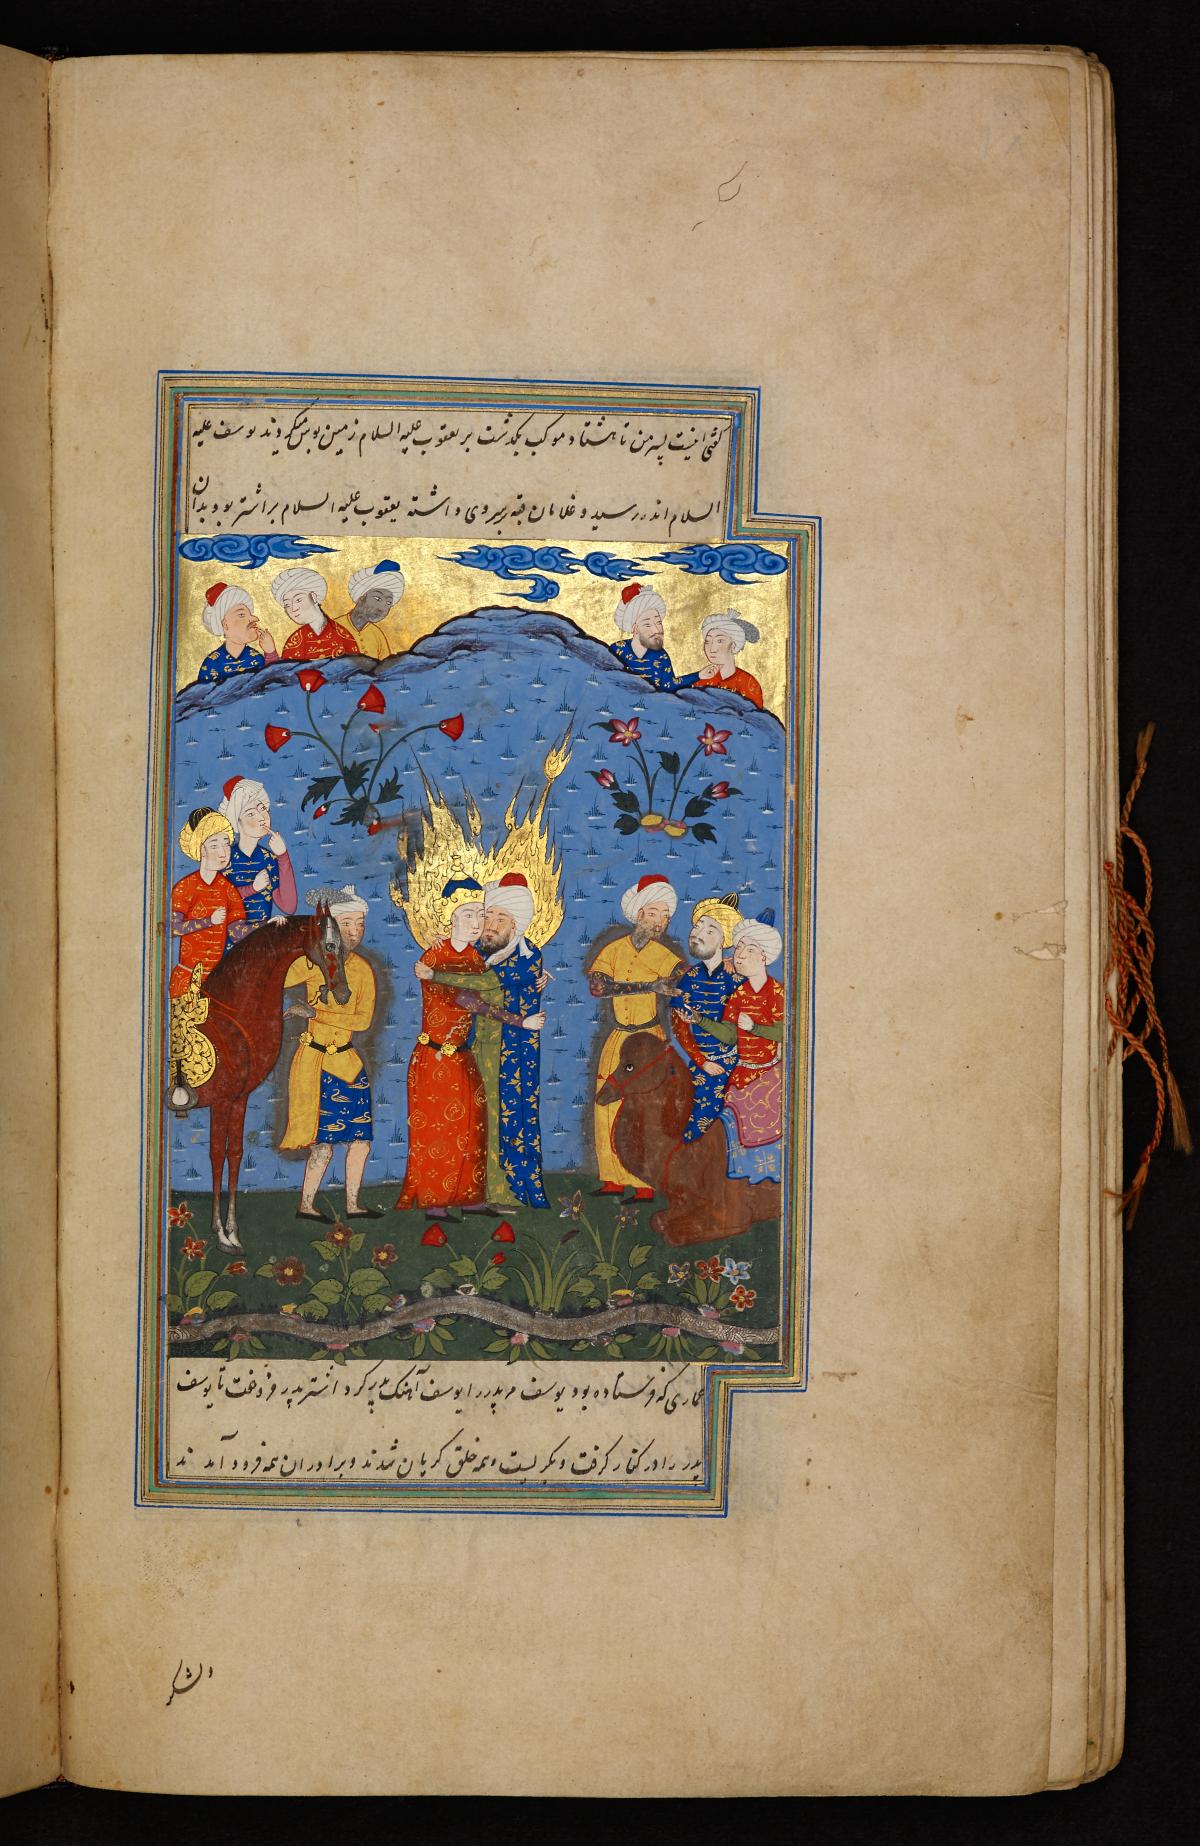 گفتی اینست پسر من تا هشتاد موکب بگذشت بر یعقوب علیه السلام زمین بوس میکردند یوسف علیه
السلام اندر رسید و غلامان قبه بر سر وی داشته یعقوب علیه السلام بر اشتر بود بدان
عماری که فرستاده بود یوسف مر پدر را یوسف آهنک پدر کرد اشتر پدر فروخفت تا یوسف
پدر را در کنار کرفت و بکریست و همه خلق کریان شدند و برادران همه فرود آمدند
و لشکر